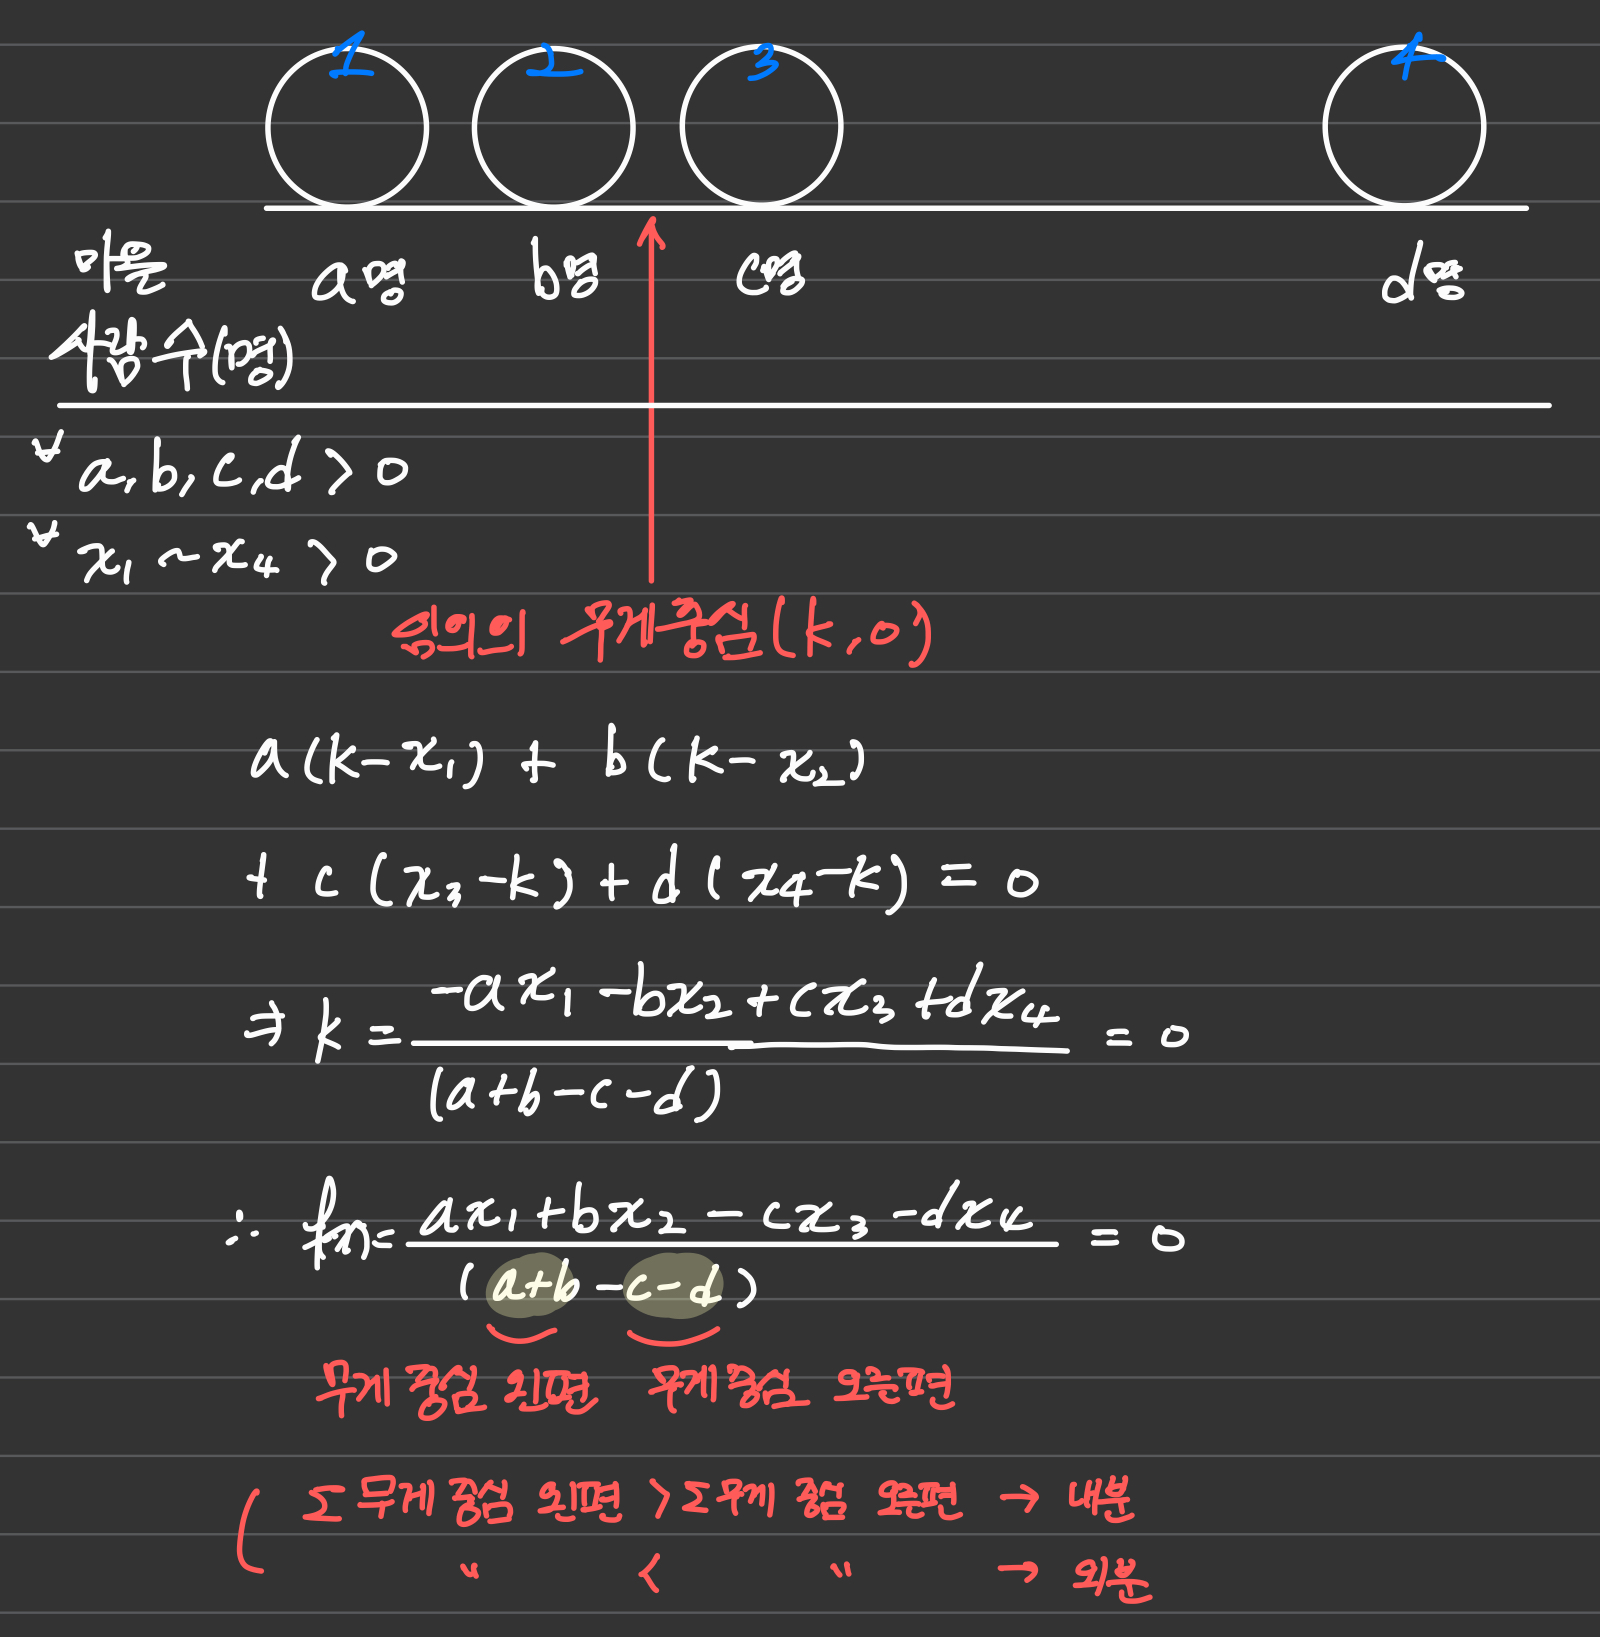 1 2 3 4
마을 a명 b명 c명 d명
사람 수(명)
∀ a, b, c, d > 0
∀ x₁ ~ x₄ > 0
임의의 무게중심(k, 0)
a(k-x₁) + b(k-x₂)
+ c(x₃-k) + d(x₄-k) = 0
⇒ k = (-ax₁ -bx₂ + cx₃ + dx₄)/(a+b-c-d) = 0
∴ = (ax₁+bx₂ - cx₃ - dx₄)/(a+b-c-d) = 0
무게 중심 왼편 무게중심 오른편
( Σ 무게 중심 왼편 > Σ 무게 중심 오른편 → 내분
" < " → 외분